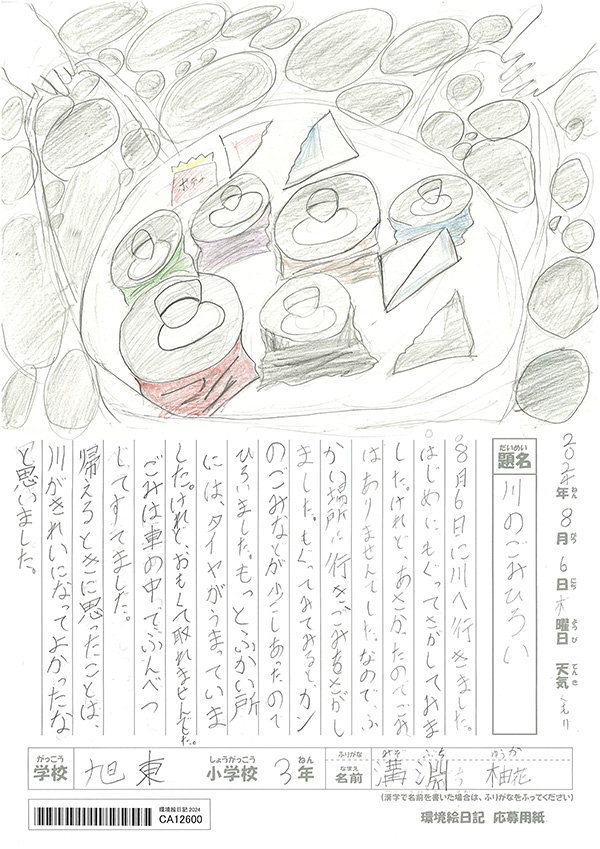 ポテト
2024年8月6日木曜日 天気くもり
ねん がつ にち ようび てんき
だいめい
題名 川のごみひろい
8月6日に川へ行きました。
はじめにもぐってさがしてみま
した。けれど、あさかったのでごみ
はありませんでした。なので、ふ
かい場所に行きごみをさがし
ました。もぐってみてみると、カン
のごみなどが少しあったので
ひろいました。もっとふかい所
には、タイヤがうまっていま
した。けれど、おもくて取れませんでした。
ごみは車の中でぶんべつ
してすてました。
帰えるときに思ったことは、
川がきれいになってよかったな
と思いました。
がっこう しょうがっこう ねん ふりがな みぞ ぶち ゆうか
学校 旭東 小学校 3年 なまえ 名前 溝渕 柚花
(漢字で名前を書いた場合は、ふりがなをふってください)
環境絵日記 2024
CA12600
環境絵日記 応募用紙